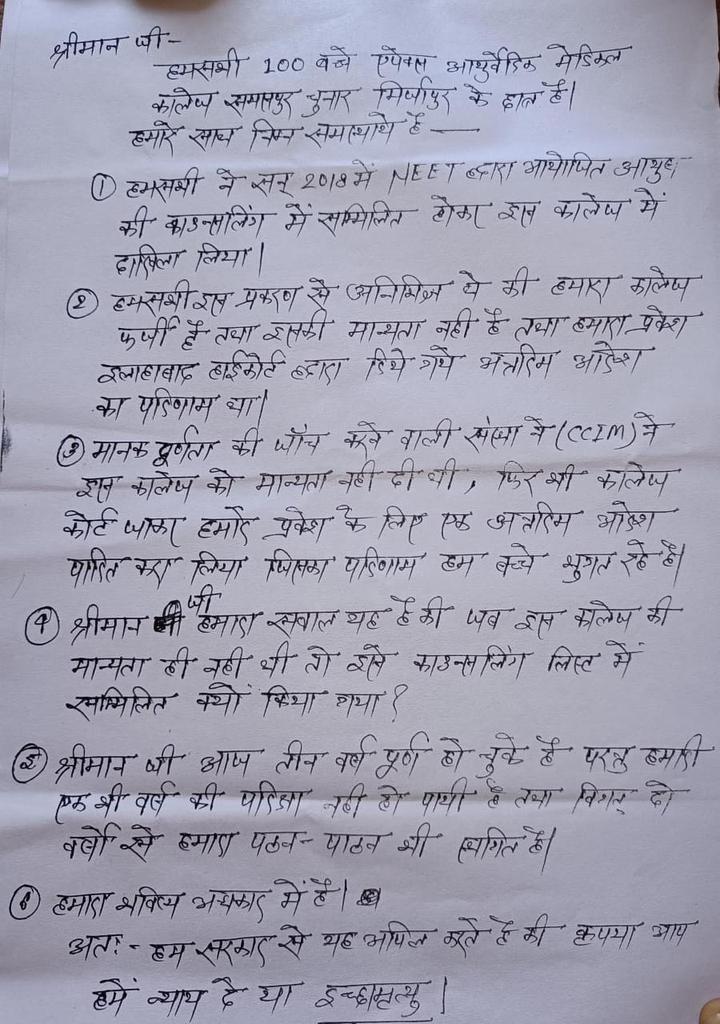 श्रीमान जी-
हमसभी 100 बच्चे एपेक्स आयुर्वेदिक मेडिकल
कालेज समसपुर चुनार मिर्जापुर के छात्र है।
हमारे साथ निम्न समस्याये है —
① हमसभी ने सन् 2018 में NEET द्वारा आयोजित आयुष
की काउन्सलिंग में सम्मिलित होकर इस कालेज में
दाखिला लिया।
② हमसभी इस प्रकरण से अनिभिज्ञ थे की हमारा कालेज
फर्जी है तथा इसकी मान्यता नही है तथा हमारा प्रवेश
इलाहाबाद हाईकोर्ट द्वारा दिये गये अन्तरिम आदेश
का परिणाम था।
③ मानक पूर्णता की जाँच करने वाली संस्था ने (CCIM) ने
इस कालेज को मान्यता नही दी थी, फिर भी कालेज
कोर्ट जाकर हमारे प्रवेश के लिए एक अन्तरिम आदेश
पारित करा लिया जिसका परिणाम हम बच्चे भुगत रहे है।
④ श्रीमान जी हमारा सवाल यह है की जब इस कालेज की
मान्यता ही नही थी तो इसे काउन्सलिंग लिस्ट में
सम्मिलित क्यों किया गया?
⑤ श्रीमान जी आज तीन वर्ष पूर्ण हो चुके है परन्तु हमारी
एक भी वर्ष की परिक्षा नही हो पायी है तथा विगत् दो
वर्षो से हमारा पठन-पाठन भी स्थगित है।
⑥ हमारा भविष्य अन्धकार में है।
अतः- हम सरकार से यह अपिल करते है की कृपया आप
हमें न्याय दे या इच्छामृत्यु।